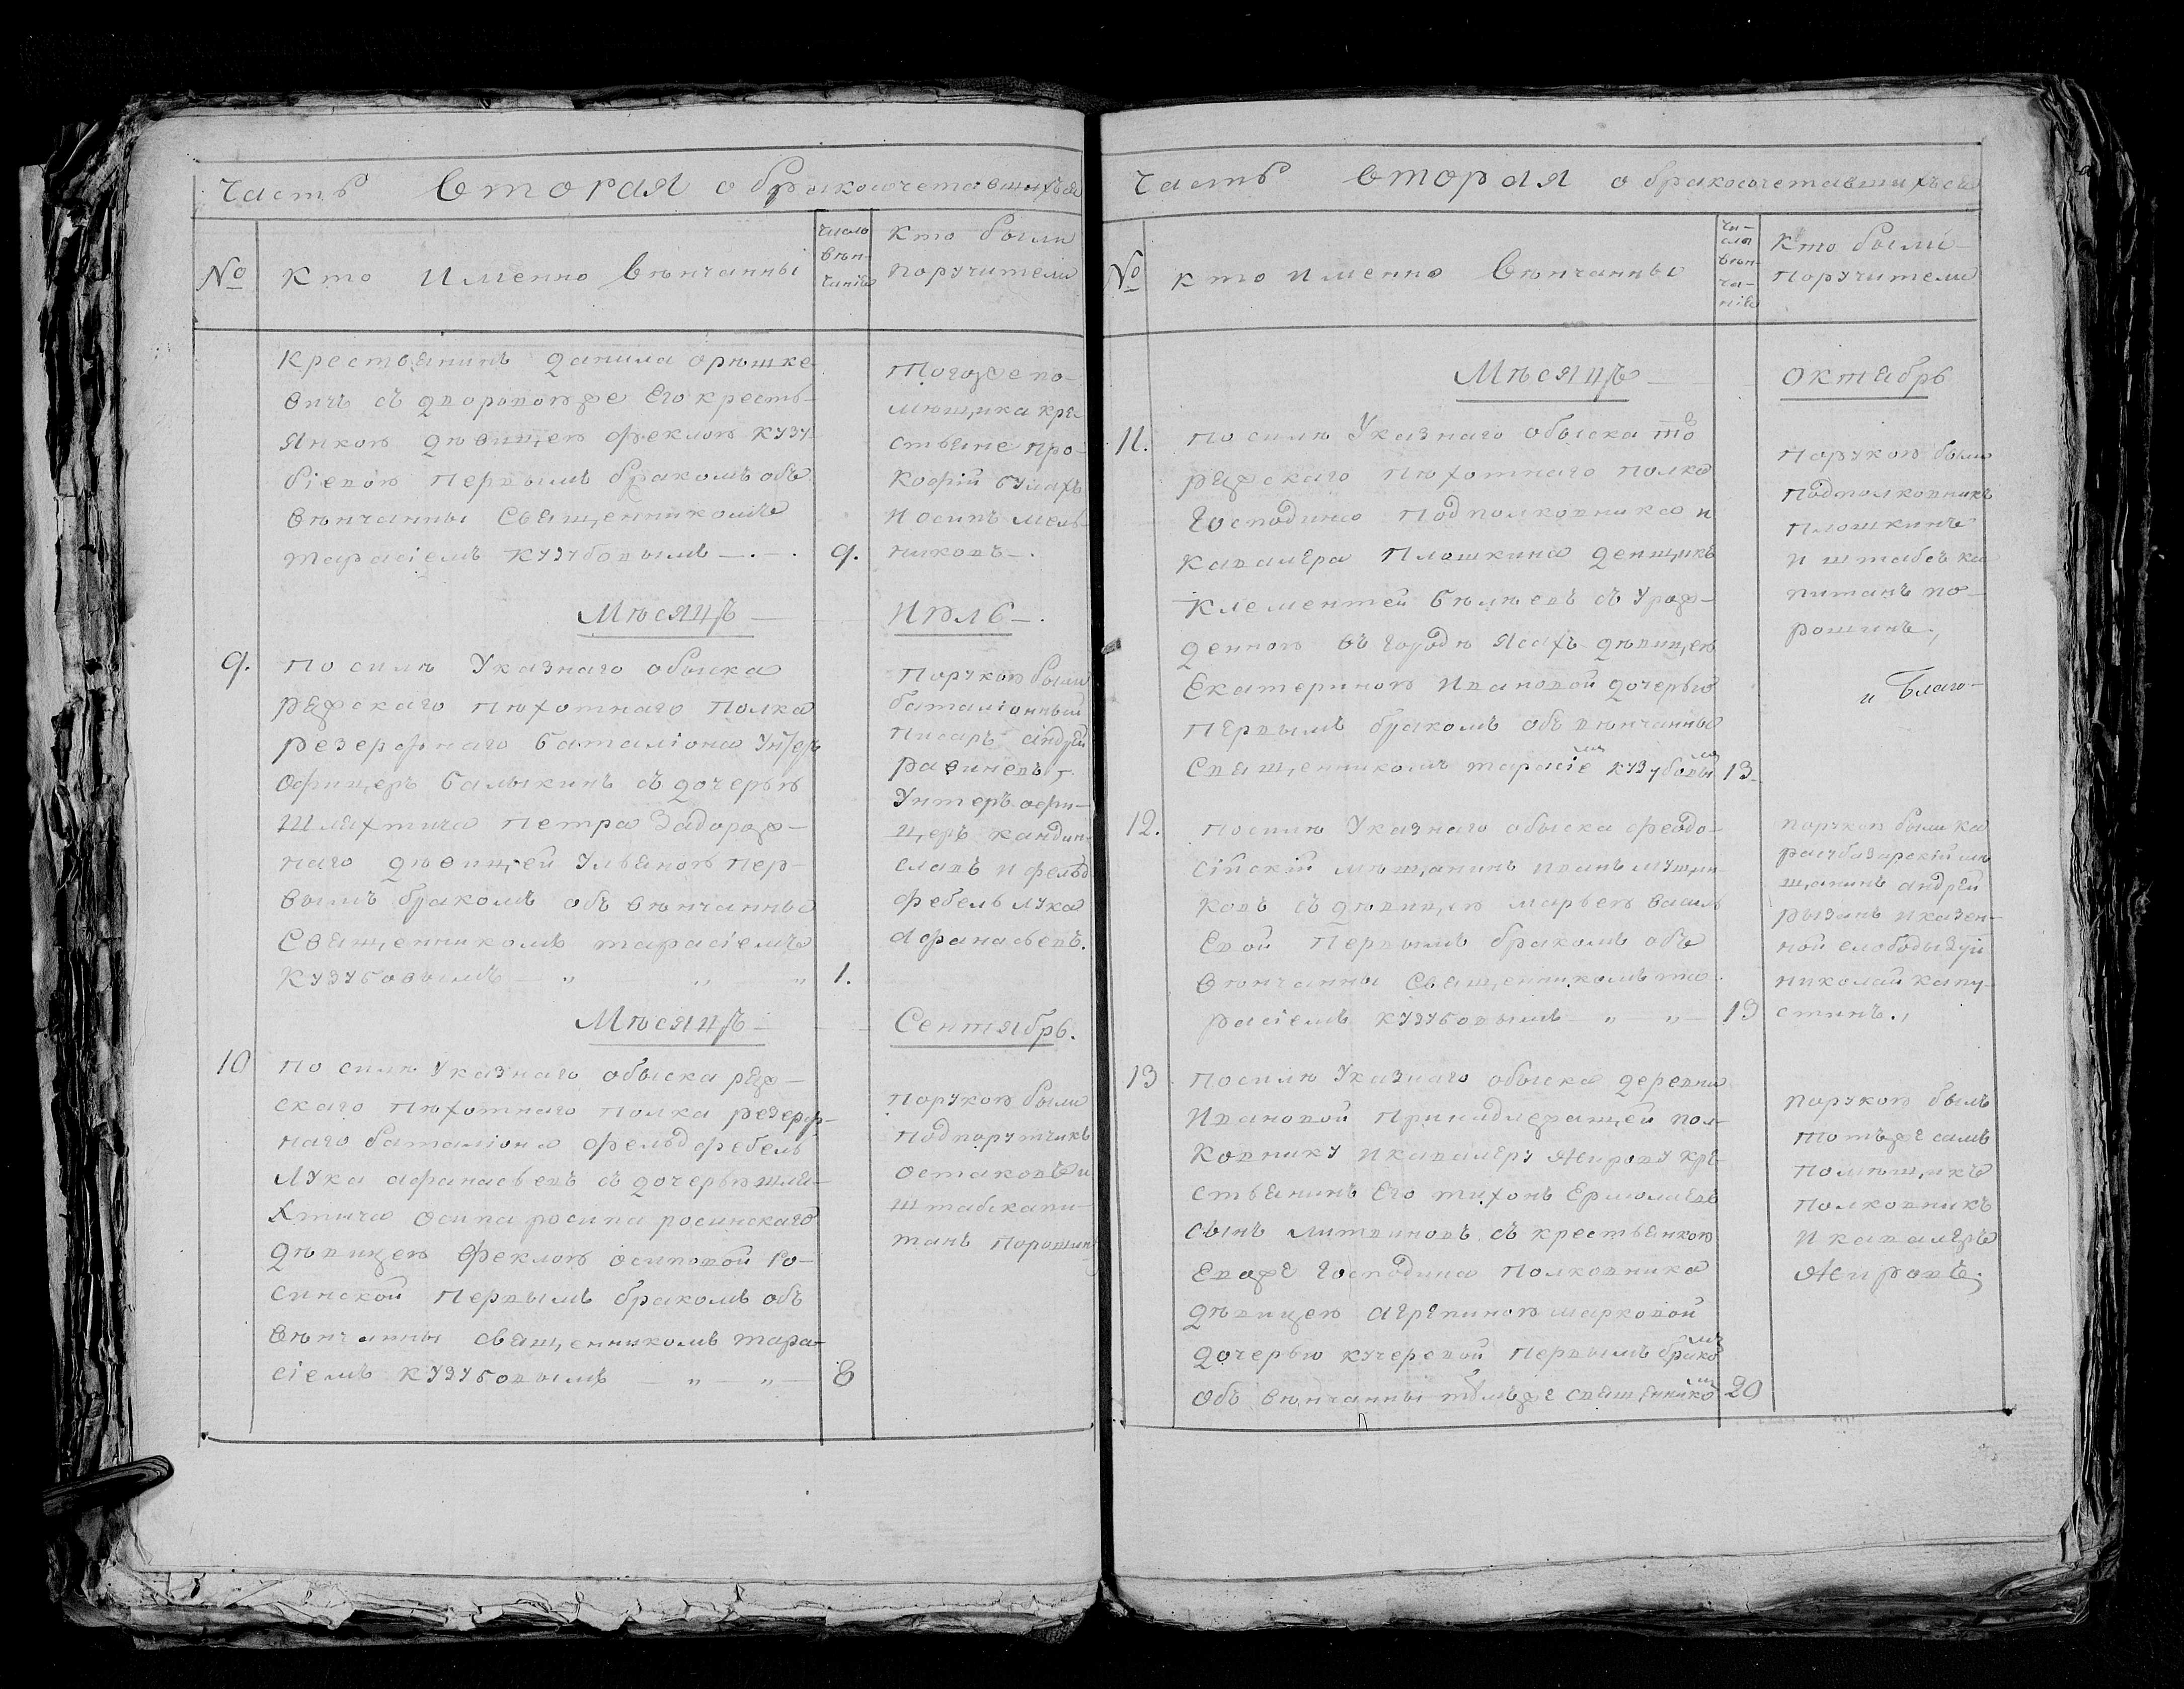 Часть вторая о бракосочетавшихся
№
Кто Именно Вѣнчанны
число
вѣн-
чанiя
Кто были
поручители
Крестьянинъ Данила орѣшке
вичъ съ дворовоюже Его кресть-
янкою дѣвицею феклою кузу-
бiевою первымъ бракомъ объ
вѣнчанны Священникомъ
тарасiемъ кузубовымъ
9.
Тогоже по-
мѣщика кре-
стьяне про-
кофiй булахъ
и осипъ мель-
никовъ
Мѣсяцъ
Июль
9.
по силѣ Указнаго обыска
ряжскаго пѣхотнаго полка
резерфнаго баталiона Унтер
офицеръ балыкинъ съ дочерью
шляхтича петра Задорож-
наго дѣвицей Ульяною пер-
вымъ бракомъ объ вѣнчанны
Священникомъ тарасiемъ
кузубовымъ
1.
порукою были
баталiонный
писарь андрей
равиневъ
Унтеръ офи-
церъ кандин-
славъ и фельд
фебель лука
афанасьевъ.
Мѣсяцъ
Сентябрь.
10
по силѣ Указнаго обыска ряж-
скаго пѣхотнаго полка резерф-
наго баталiона фельдфебель
лука афанасьевъ съ дочерью шля-
хтича осипа росипа росинскаго
дѣвицею феклою осиповой ро-
синской первымъ бракомъ объ
вѣнчанны священникомъ тара-
сiемъ кузубовымъ
8
порукою были
подпорутчикъ
остаковъ и
штабскапи-
танъ порошин
Часть вторая о бракосочетавшихся
№
кто именно Вѣнчанны
чи-
сла
вѣн-
ча-
нiя
Кто были
поручители
Мѣсяцъ
октябрь
11.
по силѣ Указнаго обыска то
ряжскаго пѣхотнаго полка
господина подполковника и
кавалера плошкина денщикъ
клементей бѣляевъ съ урож-
денною въ городѣ Ясахъ дѣвицею
Екатериною ивановой дочерью
первымъ бракомъ объ вѣнчанны
Священникомъ тарасiемъ кузубовым
13
порукою были
подполковникъ
плошкинъ
и штабсъ ка
питанъ по-
рошинъ.
и благо-
12.
по силѣ Указнаго обыска феодо-
сiйскiй мѣщанинъ иванъ мущин-
ковъ съ дѣвицею марьею василь
евой первымъ бракомъ объ
вѣнчанны Священникомъ та-
расiемъ кузубовымъ
13
порукою были ка
расубазарскiй мѣ
щанинъ андрей
рызанъ и казен-
ной слободы
николай капу-
стинъ.
13
по силѣ Указнаго обыска деревни
Ивановой принадлежащей пол-
ковнику и кавалеру Жирову кре
стьянинъ Его тихонъ Ермолаевъ
сынъ литвиновъ съ крестьянкою
Евоже господина полковника
дѣвицею агрепиною марковой
дочерью кучеровой первымъ браком
объ вѣнчанны тѣмъже священником
20
порукою былъ
тотъже самъ
помѣщикъ
полковникъ
и кавалеръ
Жировъ